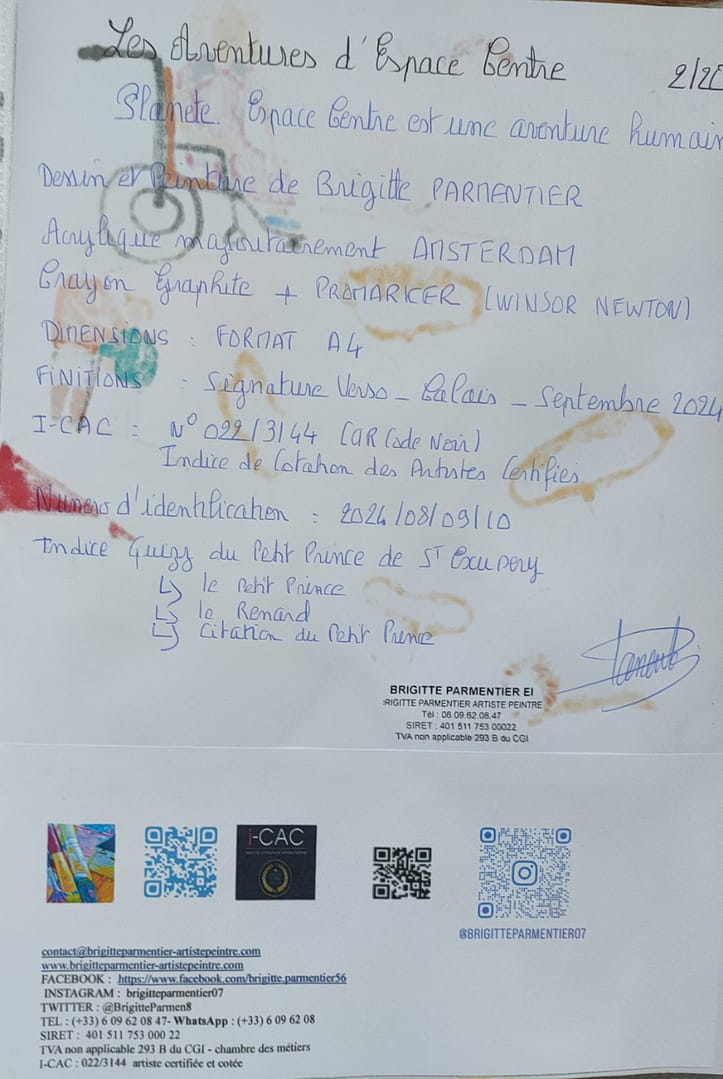 Les Aventures d'Espace Centre
2/20
Planete. Espace Centre est une aventure humain
Dessin et Peinture de Brigitte PARMENTIER
Acrylique majoritairement AMSTERDAM
Crayon Graphite + PROMARKER (WINSOR NEWTON)
DIMENSIONS : FORMAT A4
FINITIONS : Signature Verso - Calais - Septembre 2024
I-CAC : N° 022/3144 (QR Code Noir)
Indice de Cotation des Artistes Certifiés
Numéro d'identification : 2024/08/09/10
Indice Quizz du Petit Prince de ST Exupery
↳ le Petit Prince
↳ le Renard
↳ Citation du Petit Prince
BRIGITTE PARMENTIER EI
RIGITTE PARMENTIER ARTISTE PEINTRE
Tél : 06.09.62.08.47
SIRET : 401 511 753 00022
TVA non applicable 293 B du CGI
I-CAC
@BRIGITTEPARMENTIER07
contact@brigitteparmentier-artistepeintre.com
www.brigitteparmentier-artistepeintre.com
FACEBOOK : https://www.facebook.com/brigitte.parmentier56
INSTAGRAM : brigitteparmentier07
TWITTER : @BrigitteParmen8
TEL : (+33) 6 09 62 08 47- WhatsApp : (+33) 6 09 62 08
SIRET : 401 511 753 000 22
TVA non applicable 293 B du CGI - chambre des métiers
I-CAC : 022/3144 artiste certifiée et cotée